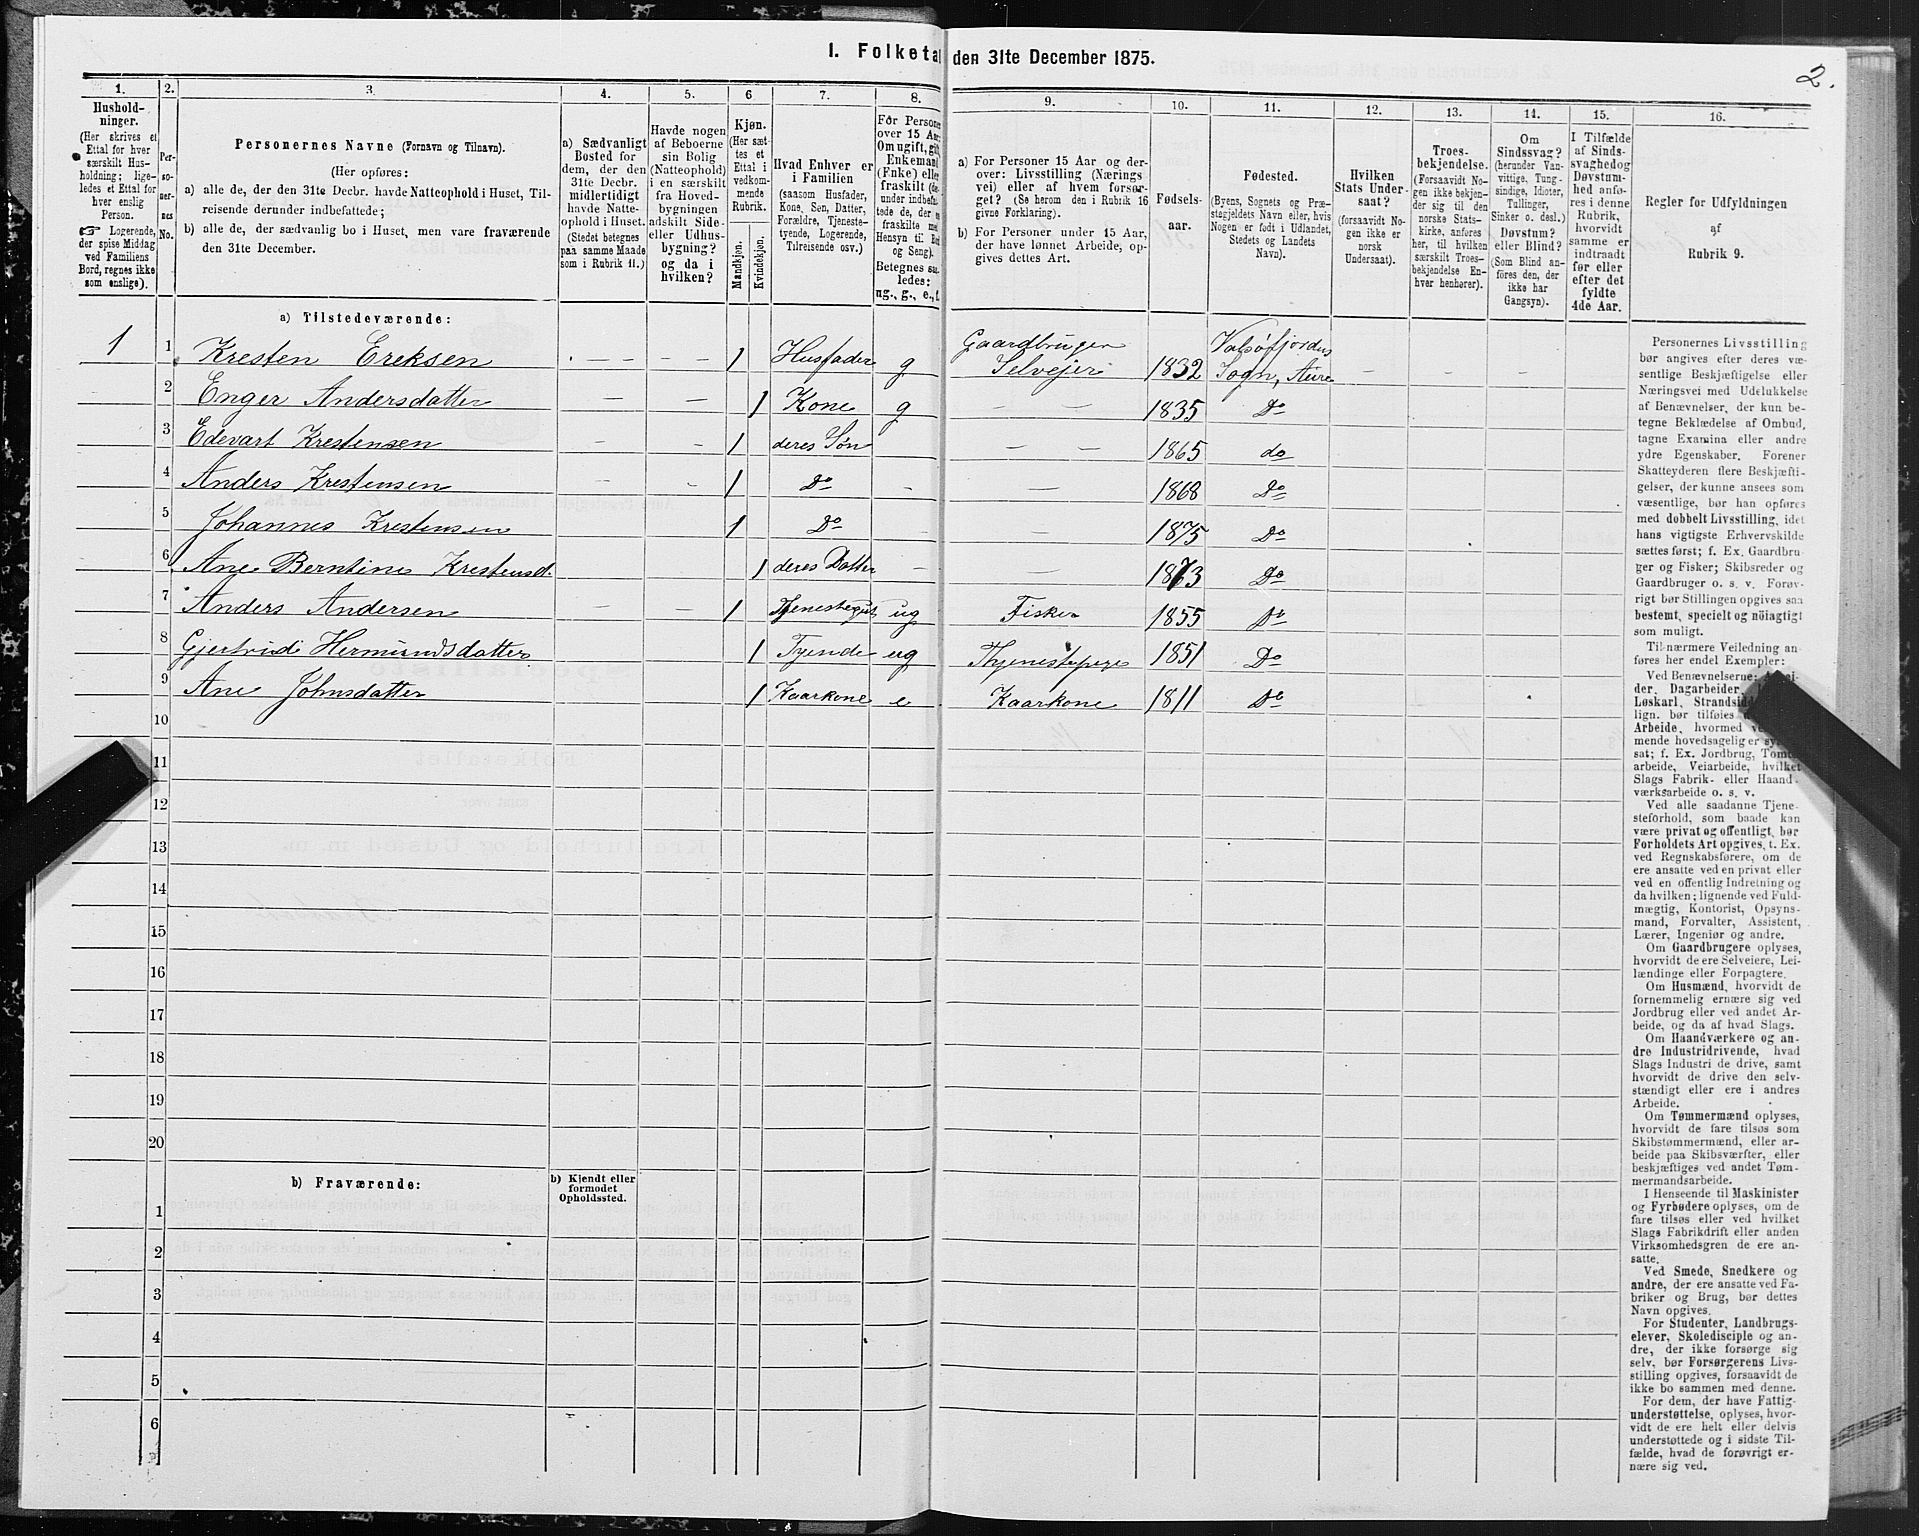 1. Folketal den 31te December 1875.
2.
1. 2. 3. 4. 5. 6 7. 8. 9. 10. 11. 12. 13. 14. 15. 16.
Hushold-
ninger.
(Her skrives et
Ettal for hver
særskilt Hus-
holdning; lige-
ledes et Ettal for
hver enslig
Person.
☞ Logerende,
der spise Middag
ved Familiens
Bord, regnes ikke
som enslige).
Per-
so-
ner-
nes
No.
Personernes Navne (Fornavn og Tilnavn).
(Her opføres:
a) alle de, der den 31te Decbr. havde Natteophold i Huset, Til-
reisende derunder indbefattede;
b) alle de, der sædvanlig bo i Huset, men vare fraværende
den 31te December.
a) Sædvanligt
Bosted for
dem, der den
31te Decbr.
midlertidigt
havde Natte-
ophold i Huset.
(Stedet betegnes
paa samme Maade
som i Rubrik 11.)
Havde nogen
af Beboerne
sin Bolig
(Natteophold)
i en særskilt
fra Hoved-
bygningen
adskilt Side-
eller Udhus-
bygning?
og da i
hvilken?
Kjøn.
(Her sæt-
tes et
Ettal i
vedkom-
mende
Rubrik.
Mandkjøn.
Kvindekjøn.
Hvad Enhver er
i Familien
(saasom Husfader,
Kone, Søn, Datter,
Forældre, Tjeneste-
tyende, Logerende,
Tilreisende osv.)
For Personer
over 15 Aar:
Om ugift, gift,
Enkemand
(Enke) eller
fraskilt
Betegnes saa-
ledes:
ug., g., e., f.
a) For Personer 15 Aar og der-
over: Livsstilling (Nærings-
vei) eller af hvem forsør-
get? (Se herom den i Rubrik 16
givne Forklaring).
b) For Personer under 15 Aar,
der have lønnet Arbeide, op-
gives dettes Art.
Fødsels-
aar.
Fødested.
(Byens, Sognets og Præ-
stegjeldets Navn eller, hvis
Nogen er født i Udlandet,
Stedets og Landets
Navn).
Hvilken
Stats Under-
saat?
(forsaavidt No-
gen ikke er
norsk
Undersaat).
Troes-
bekjendelse.
(Forsaavidt No-
gen ikke bekjen-
der sig til den
norske Stats-
kirke, anføres
her, til hvilken
særskilt Troes-
bekjendelse En-
hver henhører).
Om
Sindssvag?
(herunder Van-
vittige, Tung-
sindige, Idioter,
Tullinger,
Sinker o. desl.)
Døvstum?
eller Blind?
(Som Blind an-
føres den, der
ikke har
Gangsyn).
I Tilfælde
af Sinds-
svaghed og
Døvstum-
hed anfø-
res i denne
Rubrik,
hvorvidt
samme er
indtraadt
før eller
efter det
fyldte
4de Aar.
Regler for Udfyldningen
af
Rubrik 9.
a) Tilstedeværende:
1 1 Kresten Ereksen - - - - 1 Husfader g Gaardbruger Selvejer 1832 Valsøfjordens Sogn, Aure - - - -
2 Enger Andersdatter - - 1 Kone g - - 1835 Do
3 Edevart Krestensen - - 1 deres Søn - - 1865 do
4 Anders Krestensen - - 1 Do - - 1868 Do
5 Johannes Krestensen 1 Do - - 1875 Do
6 Ane Berntine Krestensd. 1 deres Datter - - 1873 Do
7 Anders Andersen - - 1 Tjenestegut ug Fisker 1855 Do
8 Gjertrud Hermundsdatter 1 Tyende ug Thjenestepige 1851 Do
9 Ane Johnsdatter 1 Kaarkone e Kaarkone 1811 Do
10
11
12
13
14
15
16
17
18
19
20
b) Fraværende:
b) Kjendt eller
formodet
Opholdssted.
1
2
3
4
5
6
Personernes Livsstilling
bør angives efter deres væ-
sentlige Beskjæftigelse eller
Næringsvei med Udelukkelse
af Benævnelser, der kun be-
tegne Beklædelse af Ombud,
tagne Examina eller andre
ydre Egenskaber. Forener
Skatteyderen flere Beskjæfti-
gelser, der kunne ansees som
væsentlige, bør han opføres
med dobbelt Livsstilling, idet
hans vigtigste Erhvervskilde
sættes først; f. Ex. Gaardbru-
ger og Fisker; Skibsreder og
Gaardbruger o. s. v. Forøv-
rigt bør Stillingen opgives saa
bestemt, specielt og nöiagtigt
som muligt.
Til nærmere Veiledning an-
føres her endel Exempler:
Ved Benævnelserne:
der, Dagarbeider,
Løskarl, Strandsid
lign. bør tilføies
Arbeide, hvormed
mende hovedsagelig er
sat; f. Ex. Jordbrug, Tomt-
arbeide, Veiarbeide, hvilket
Slags Fabrik- eller Haand-
værksarbeide o. s. v.
Ved alle saadanne Tjene-
steforhold, som baade kan
være privat og offentligt, bør
Forholdets Art opgives, t. Ex.
ved Regnskabsførere, om de
ere ansatte ved en privat eller
ved en offentlig Indretning og
da hvilken; lignende ved Fuld-
mægtig, Kontorist, Opsyns-
mand, Forvalter, Assistent,
Lærer, Ingeniør og andre.
Om Gaardbrugere oplyses,
hvorvidt de ere Selveiere, Lei-
lændinge eller Forpagtere.
Om Husmænd, hvorvidt de
fornemmelig ernære sig ved
Jordbrug eller ved andet Ar-
beide, og da af hvad Slags.
Om Haandværkere og an-
dre Industridrivende, hvad
Slags Industri de drive, samt
hvorvidt de drive den selv-
stændigt eller ere i andres
Arbeide.
Om Tømmermænd oplyses,
hvorvidt de fare tilsøs som
Skibstømmermænd, eller ar-
beide paa Skibsværfter, eller
beskjæftiges ved andet Tøm-
mermandsarbeide.
I Henseende til Maskinister
og Fyrbødere oplyses, om de
fare tilsøs eller ved hvilket
Slags Fabrikdrift eller anden
Virksomhedsgren de ere an-
satte.
Ved Smede, Snedkere og
andre, der ere ansatte ved Fa-
briker og Brug, bør dettes
Navn opgives.
For Studenter, Landbrugs-
elever, Skoledisciple og an-
dre, der ikke forsørge sig
selv, bør Forsørgerens Livs-
stilling opgives, forsaavidt de
ikke bo sammen med denne.
For dem, der have Fattig-
understøttelse, oplyses, hvor-
vidt de ere helt eller delvis
understøttede og i sidste Til-
fælde, hvad de forøvrigt er-
nære sig ved.